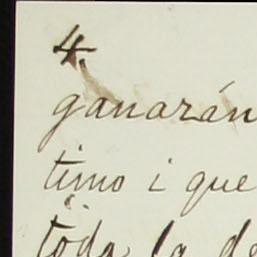 4.
ganarán
timo i que
toda la de